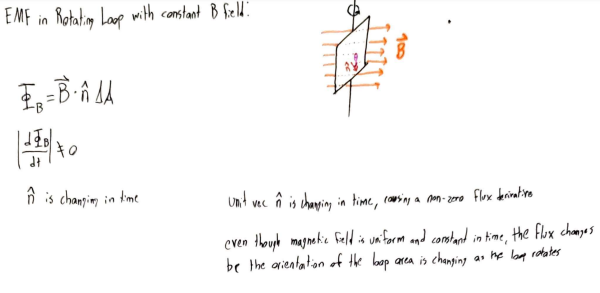 EMF in Rotating Loop with constant B field:
B⃗
Φ_B = B⃗ · n̂ ΔA
|dΦ_B/dt| ≠ 0
n̂ is changing in time
unit vec n̂ is changing in time, causing a non-zero flux derivative
even though magnetic field is uniform and constant in time, the flux changes
bc the orientation of the loop area is changing as the loop rotates